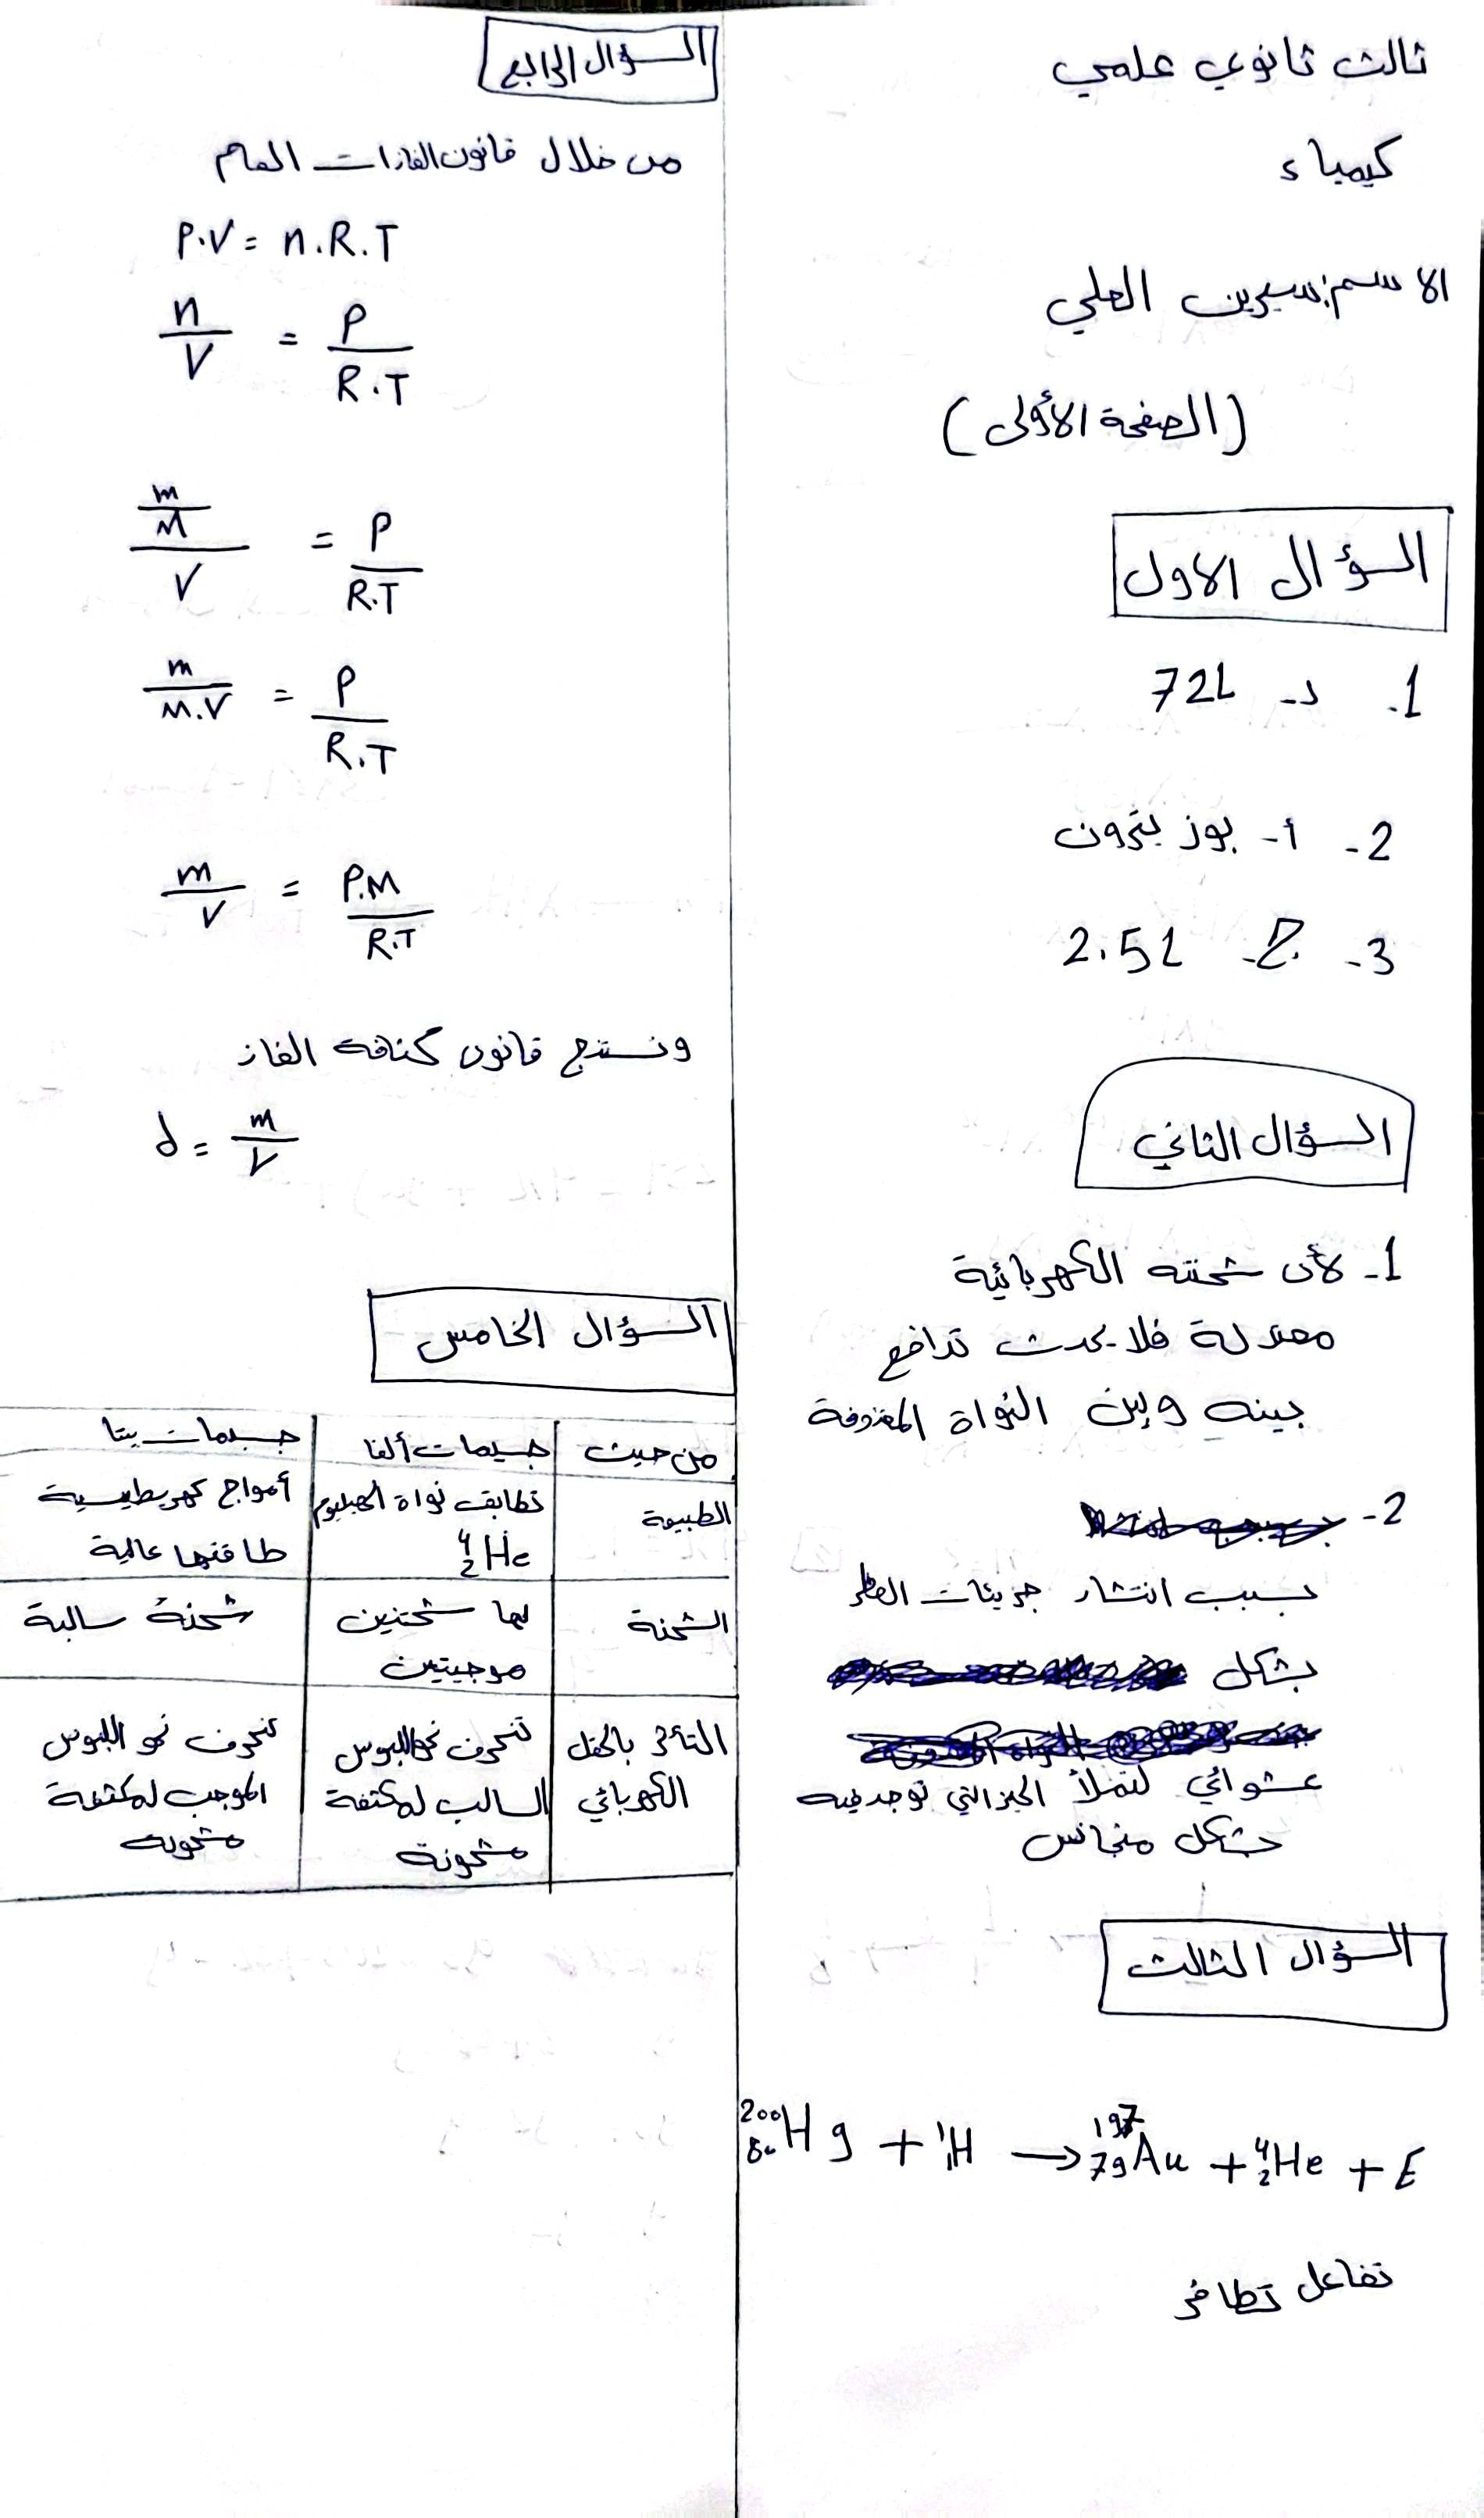 ثالث ثانوي علمي
كيمياء
الاسم: سيرين العلي
(الصفحة الأولى)
السؤال الاول
1. د- 72L
2- أ- بوزيترون
3- ج- 2.5L
السؤال الثاني
1- لأن شحنته الكهربائية
معتدلة فلا يحدث تدافع
بينه وبين النواة المقذوفة
2-
بسبب انتشار جزيئات العطر
بشكل
عشوائي لتملأ الحيز التي توجد فيه
بشكل متجانس
السؤال الثالث
²⁰⁰₈₀Hg + ¹₁H → ¹⁹⁷₇₉Au + ⁴₂He + E
تفاعل تطافر
السؤال الرابع
من خلال قانون الغازات العام
P.V = n.R.T
n/V = P/R.T
(m/M)/V = P/R.T
m/M.V = P/R.T
m/V = P.M/R.T
ونستنتج قانون كثافة الغاز
d = m/V
السؤال الخامس
من حيث جسيمات ألفا جسيمات بيتا
الطبيعة تطابق نواة الهيليوم أمواج كهرطيسية
⁴₂He طاقتها عالية
الشحنة لها شحنتين شحنة سالبة
موجبتين
التأثر بالحقل تنحرف نحو اللبوس تنحرف نحو اللبوس
الكهربائي السالب لمكثفة الموجب لمكثفة
مشحونة مشحونة